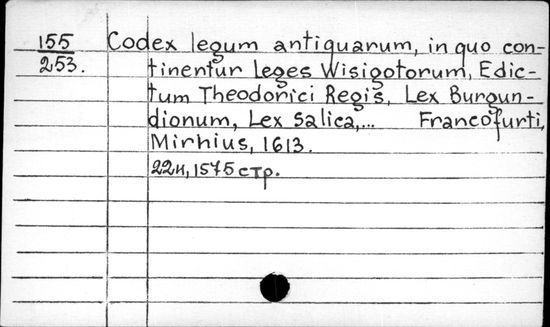 155
253.
Codex legum antiquarum, in quo con-
tinentur leges Wisigotorum, Edic-
tum Theodorici Regis, Lex Burgun-
dionum, Lex Salica,... Francofurti,
Mirhius, 1613.
22н, 1575 стр.